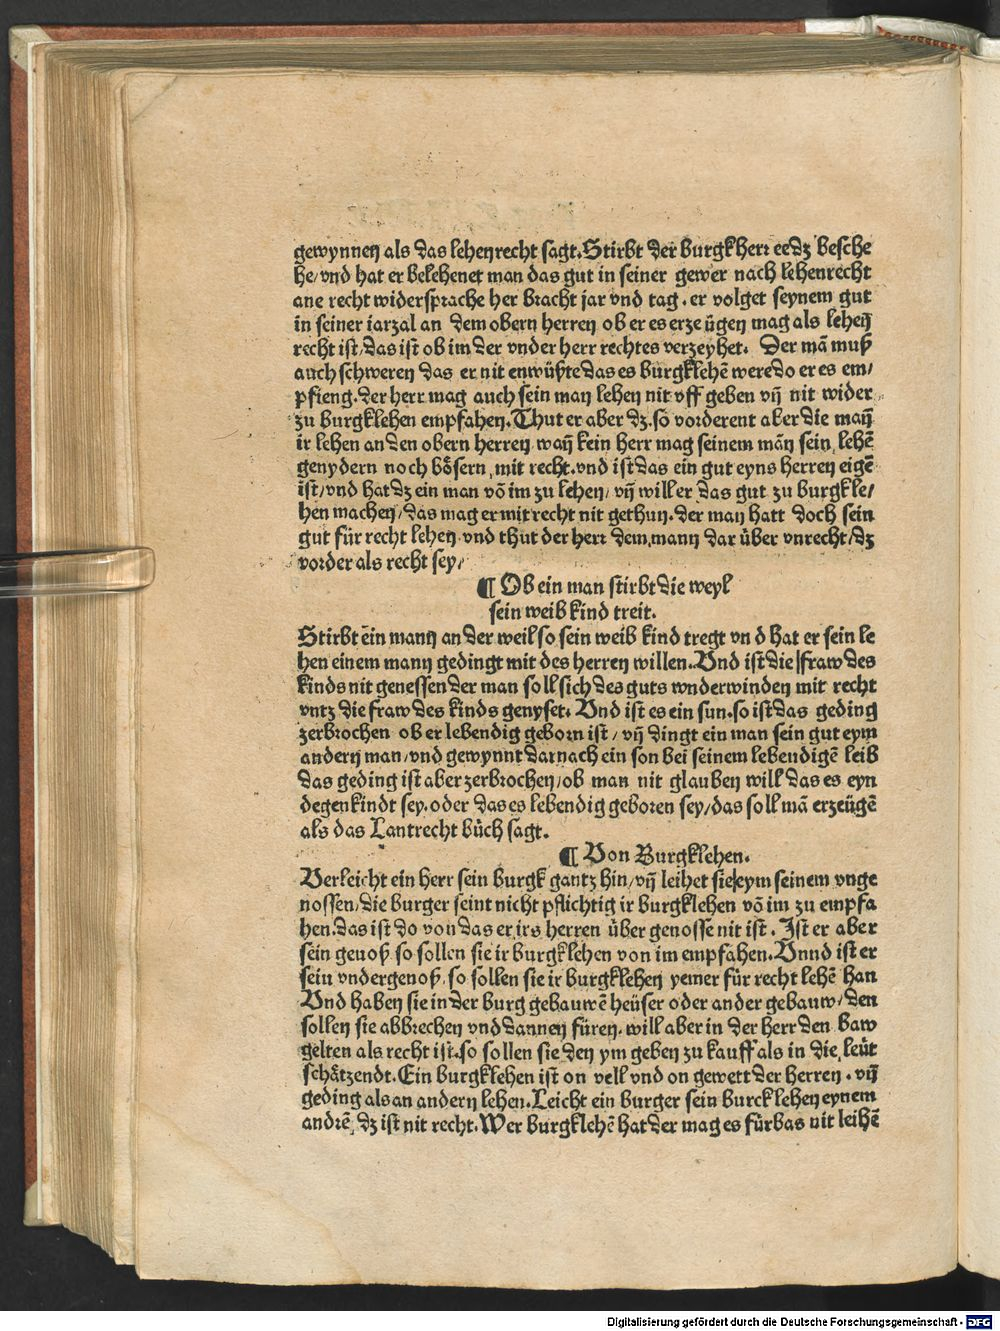 gewynnen als das lehenrecht sagt. Stirbt der burgkherr eedz besche
he/ vnd hat er belehenet man das gut in seiner gewer nach lehenrecht
ane recht widersprache her bracht jar vnd tag. er volget seynem gut
in seiner iarzal an dem obern herren ob er es erzeügen mag als lehen̄
recht ist/ das ist ob im der vnder herr rechtes verzeyhet. Der mā muß
auch schweren das er nit enwüßte das es burgklehē were do er es em/
pfieng. der herr mag auch sein man lehen nit vff geben vn̄ nit wider
zu burgklehen empfahen. Thut er aber dz. so vorderent aber die man̄
ir lehen an den obern herren wan̄ kein herr mag seinem mān sein lehē
genydern noch bösern mit recht. vnd ist das ein gut eyns herren eigē
ist/ vnd hat dz ein man vō im zu lehen/ vn̄ will er das gut zu burgkle/
hen machen/ das mag er mit recht nit gethun. der man hatt doch sein
gut für recht lehen vnd thut der herr dem mann dar über vnrecht/ dz
vorder als recht sey/
¶ Ob ein man stirbt die weyl
sein weib kind treit.
Stirbt ein mann an der weil so sein weib kind tregt vnd hat er sein le
hen einem mann gedingt mit des herren willen. Vnd ist die fraw des
kinds nit genessen der man soll sich des guts vnderwinden mit recht
vntz die fraw des kinds genyset. Vnd ist es ein sun. so ist das geding
zerbrochen ob er lebendig geborn ist/ vn̄ dingt ein man sein gut eym
andern man/ vnd gewynnt darnach ein son bei seinem lebendigē leib
das geding ist aber zerbrochen/ ob man nit glauben will das es eyn
degenkindt sey. oder das es lebendig geboren sey/ das soll mā erzeügē
als das Lantrecht büch sagt.
¶ Von Burgklehen.
Verleicht ein herr sein burgk gantz hin/ vn̄ leihet sie eym seinem vnge
nossen/ die burger seint nicht pflichtig ir burgklehen vō im zu empfa
hen. das ist do von das er irs herren über genosse nit ist. Ist er aber
sein genoß so sollen sie ir burgklehen von im empfahen. Vnnd ist er
sein vndergenoß. so sollen sie ir burgklehen yemer für recht lehē han
Vnd haben sie in der burg gebauwē heüser oder ander gebauw/ den
sollen sie abbrechen vnd dannen füren. will aber in der herr den baw
gelten als recht ist. so sollen sie den ym geben zu kauff als in die leüt
schätzendt. Ein burgklehen ist on vell vnd on gewett der herren. vn̄
geding als an andern lehen. Leicht ein burger sein burcklehen eynem
andrē, dz ist nit recht. Wer burgklehē hat der mag es fürbas nit leihē
Digitalisierung gefördert durch die Deutsche Forschungsgemeinschaft - DFG